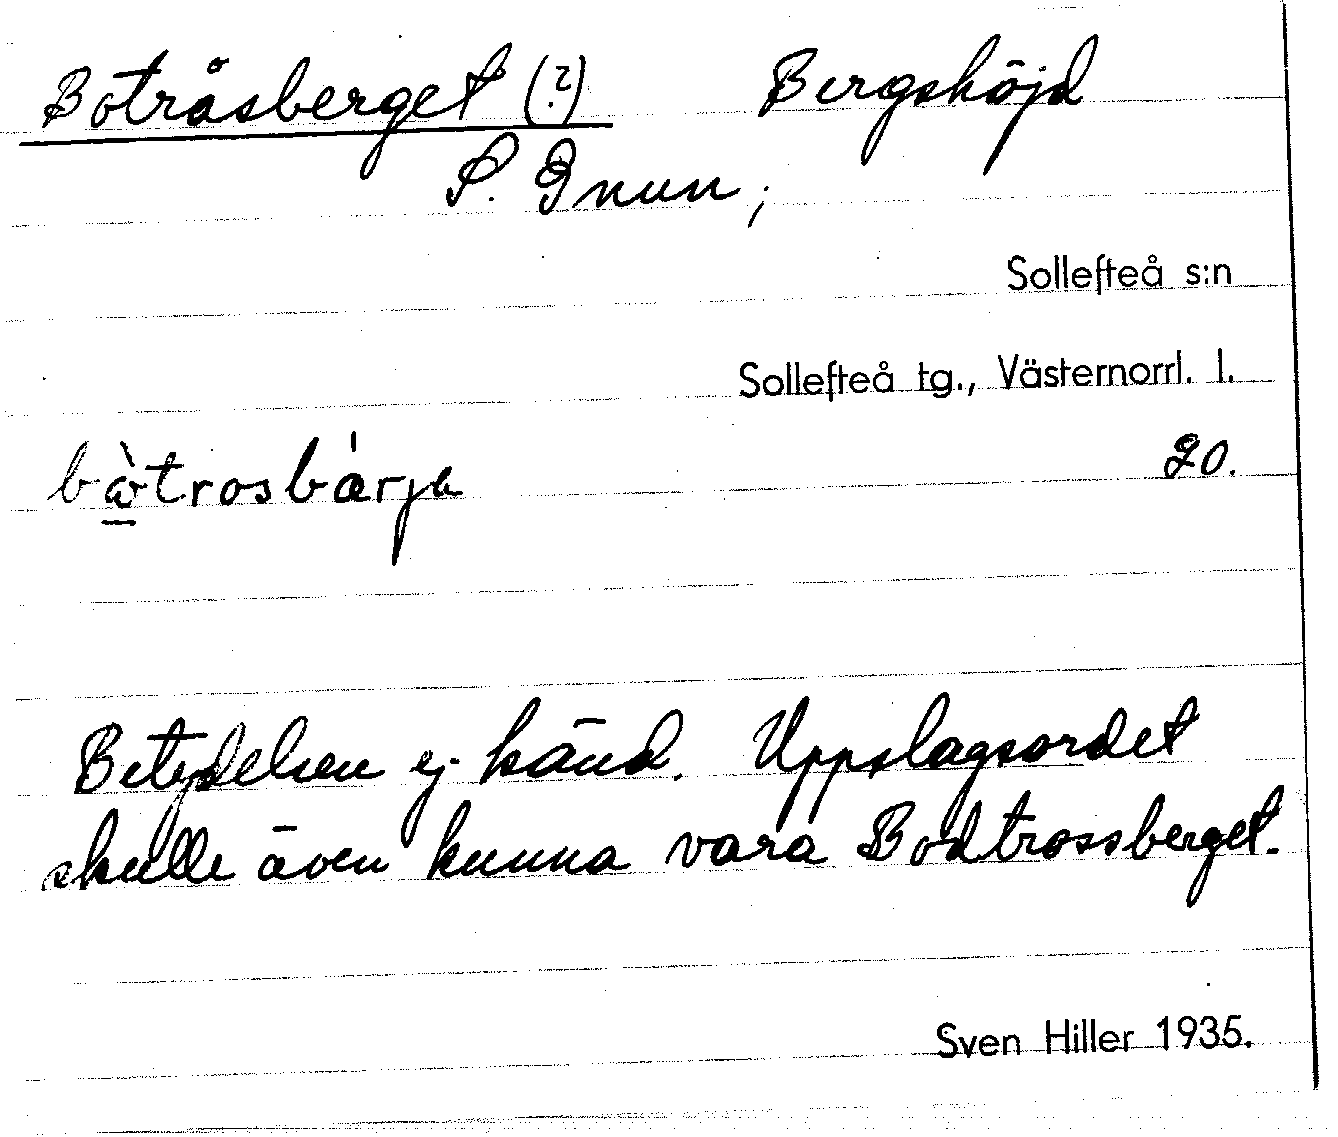 Botråsberget (?) Bergshöjd
S. Inun;
Sollefteå s:n
Sollefteå tg., Västernorrl. l.
bòtrosbárja 20.
Betydelsen ej känd. Uppslagsordet
skulle även kunna vara Bodtrossberget.
Sven Hiller 1935.